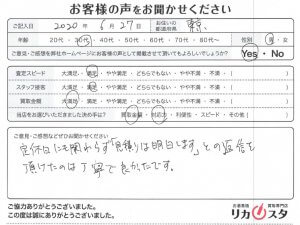 お客様の声をお聞かせください
ご記入日 2020年 6月27日 お住いの都道府県 東京
年齢 20代・30代・40代・50代・60代・70代・80代〜 性別 男・女
ご意見・ご感想を弊社ホームページにお客様の声として掲載させて頂いてもよろしいでしょうか? Yes・No
査定スピード 大満足・満足・やや満足・どちらでもない・やや不満・不満・( )
スタッフ接客 大満足・満足・やや満足・どちらでもない・やや不満・不満・( )
買取金額 大満足・満足・やや満足・どちらでもない・やや不満・不満・( )
当店をお選びいただきました決め手は? 買取金額・対応力・利便性・スピード・その他( )
ご意見・ご感想などぜひお聞かせください
定休日にも関わらず「見積りは明日します」との返信を
頂けたのは丁寧で良かったです。
ご協力ありがとうございました。
この度は誠にありがとうございました。
お酒高価買取専門店
リカスタ